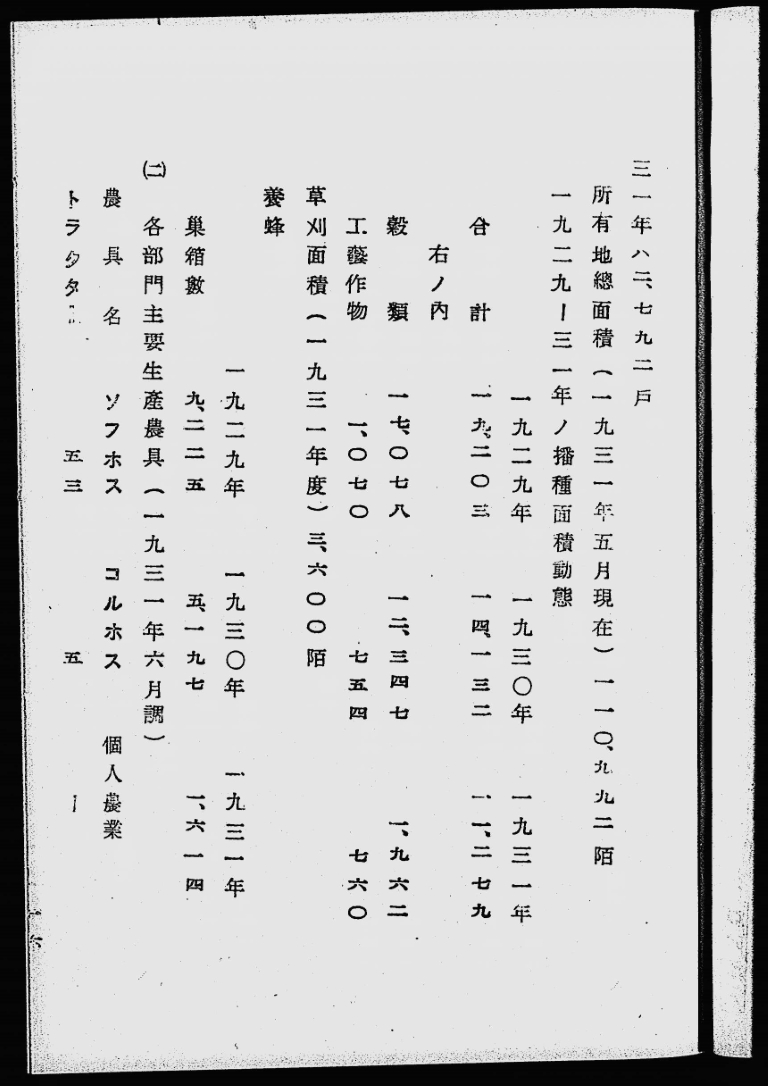 三一年八二、七九二戶
所有地總面積(一九三一年五月現在)一一〇、九九二陌
一九二九ー三一年ノ播種面積動態
一九二九年 一九三〇年 一九三一年
合計 一九、二〇三 一四、一三二 一一、二七九
右ノ內
穀類 一七、〇七八 一二、三四七 一、九六二
工藝作物 一、〇七〇 七五四 七六〇
草刈面積(一九三一年度)三、六〇〇陌
養蜂
一九二九年 一九三〇年 一九三一年
巢箱數 九、二二五 五、一九七 一、六一四
(二) 各部門主要生產農具(一九三一年六月調)
農具名 ソフホス コルホス 個人農業
トラクター 五三 五 ー
一六